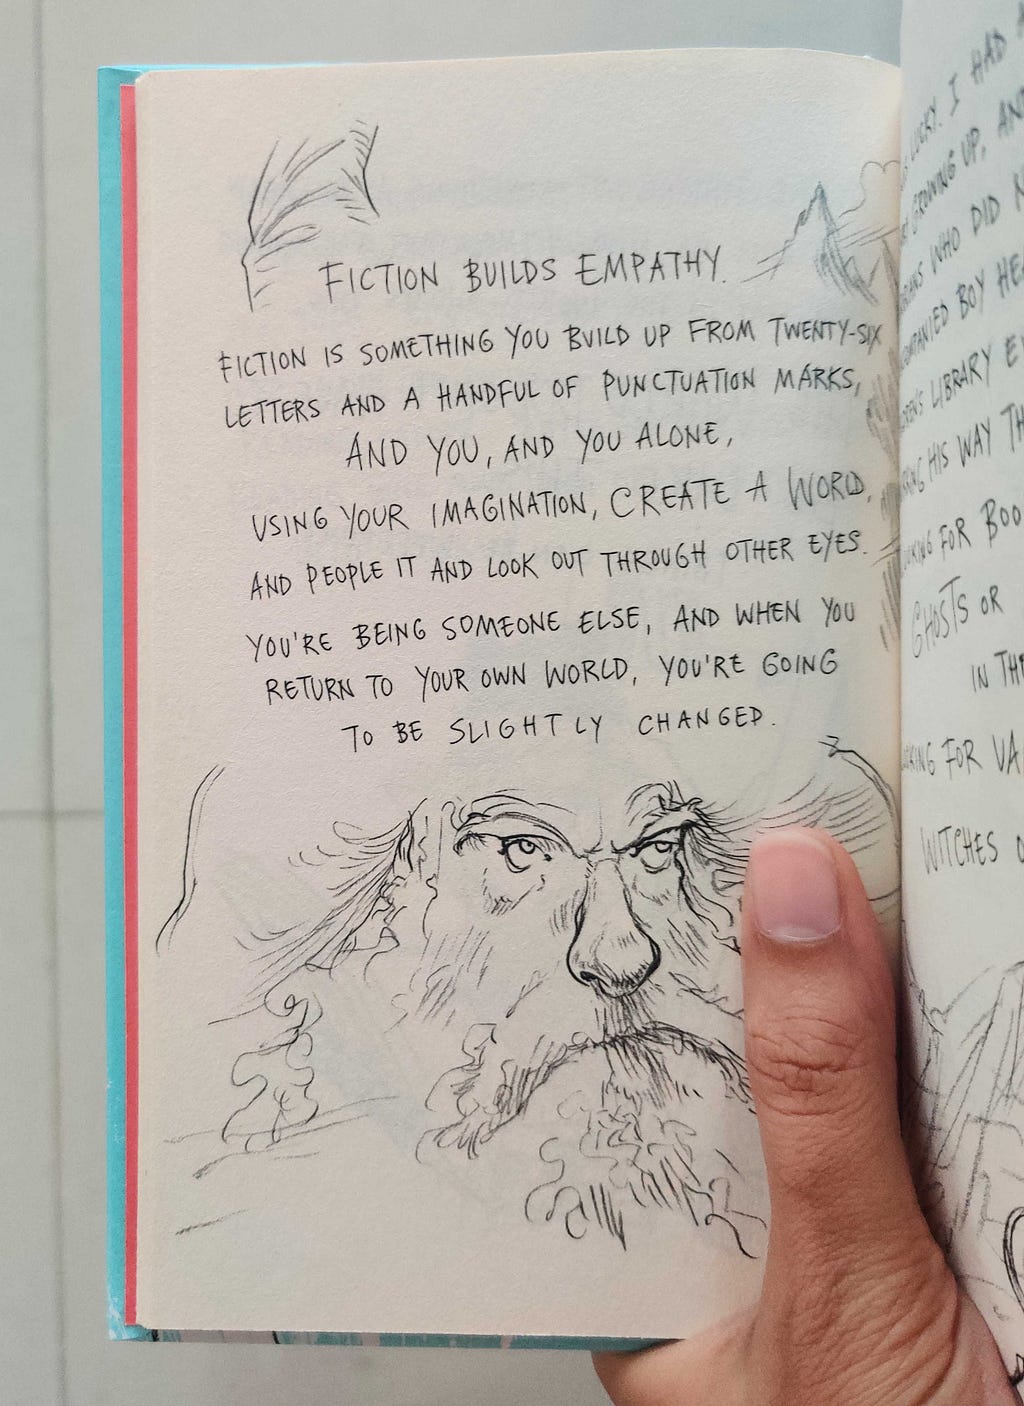 FICTION BUILDS EMPATHY.
FICTION IS SOMETHING YOU BUILD UP FROM TWENTY-SIX
LETTERS AND A HANDFUL OF PUNCTUATION MARKS,
AND YOU, AND YOU ALONE,
USING YOUR IMAGINATION, CREATE A WORLD,
AND PEOPLE IT AND LOOK OUT THROUGH OTHER EYES.
YOU'RE BEING SOMEONE ELSE, AND WHEN YOU
RETURN TO YOUR OWN WORLD, YOU'RE GOING
TO BE SLIGHTLY CHANGED.
LUCKY. I HAD
GROWING UP,
WHO DID
BOY
LIBRARY
HIS WAY
FOR
GHOSTS OR
IN
FOR
WITCHES